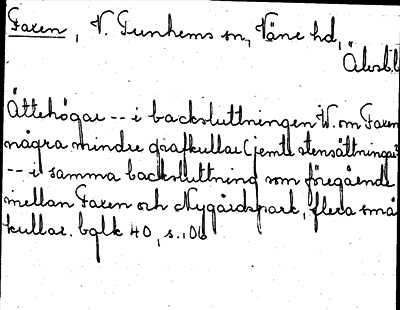 Faxen, V. Tunhems sn, Väne hd,
Älvsb.l
Ättehögar -- i backsluttningen W. om Faxen
några mindre grafkullar (jemte stensättningar)
-- i samma backsluttning som föregående
mellan Faxen och Nygårdspark, flera små
kullar. bglk 40, s. 106